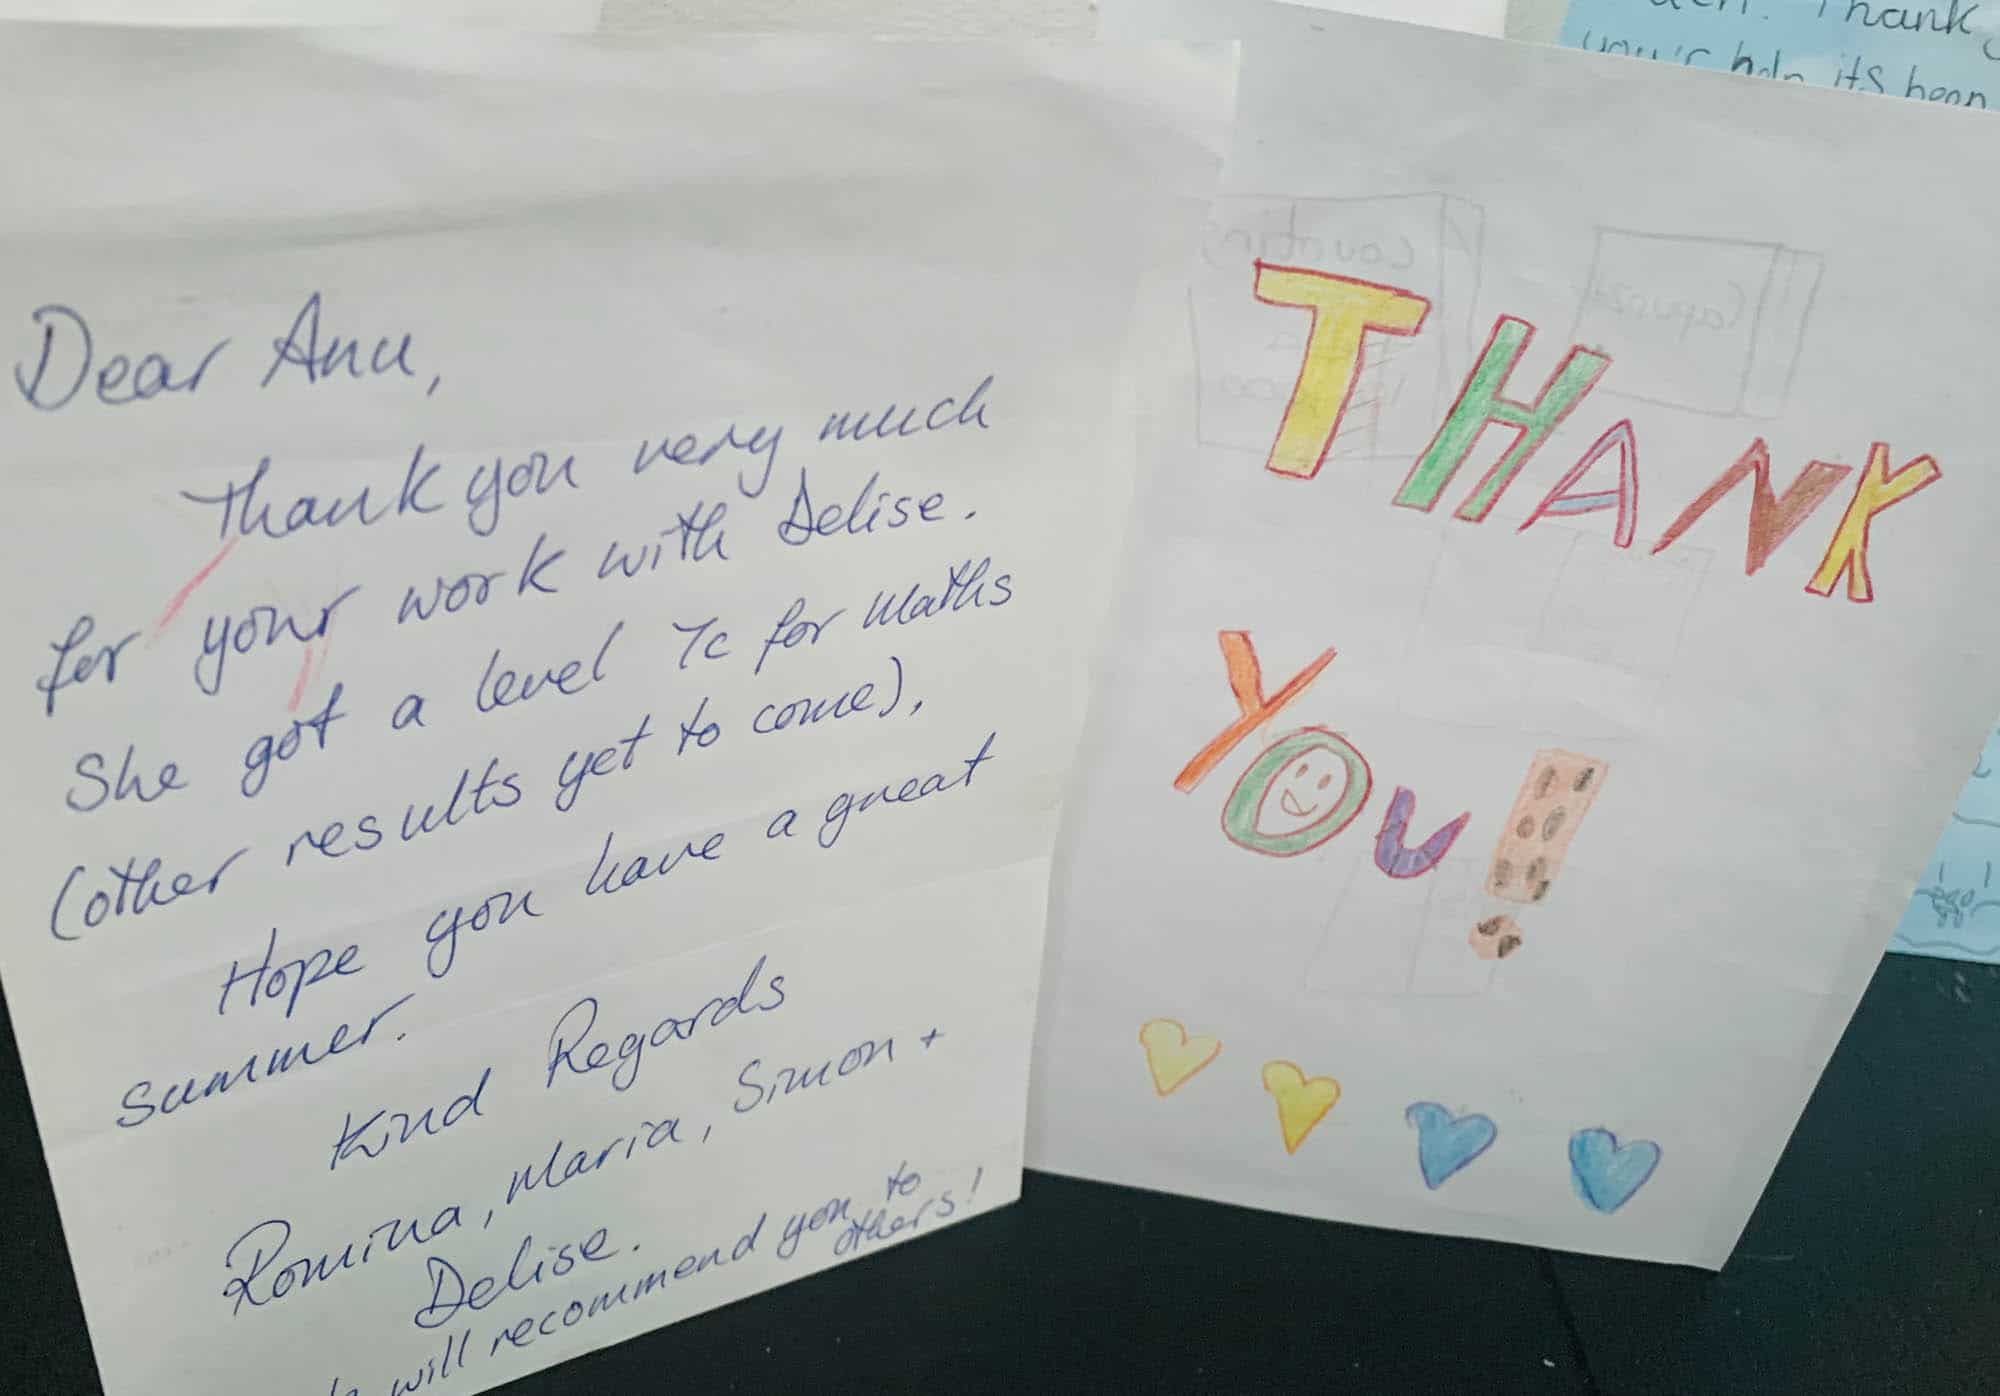 Dear Anu,
Thank you very much
for your work with Delise.
She got a level 7c for Maths
(other results yet to come),
Hope you have a great
summer.
Kind Regards
Romina, Maria, Simon +
Delise.
will recommend you to
others!
THANK
YOU!
Thank
help its been